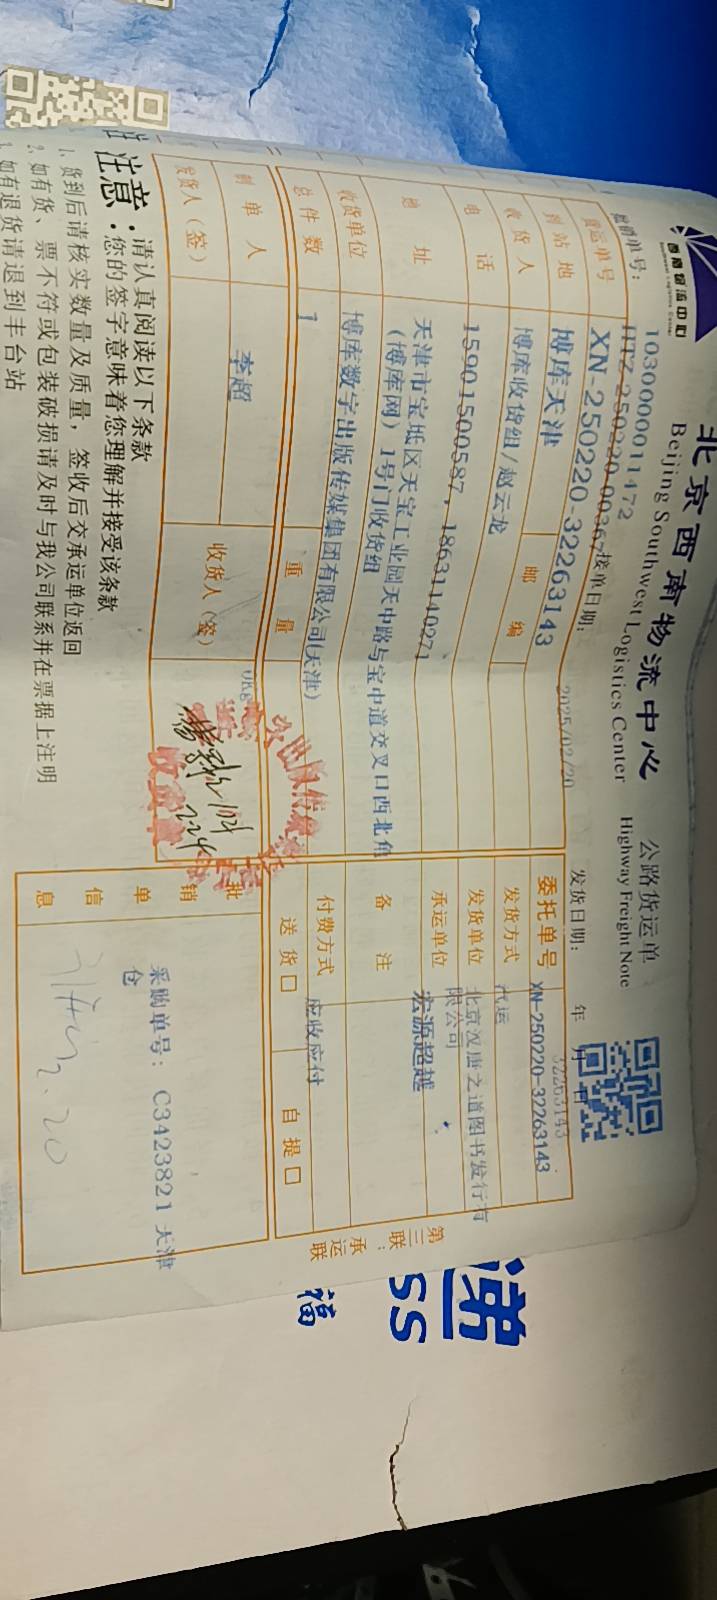 西南物流中心
北京西南物流中心
Beijing Southwest Logistics Center
公路货运单
Highway Freight Note
批销单号：
1030000011472
HTZ-250220-00367
接单日期：
2025/02/20
发货日期： 年 月 日
32263143
货运单号 XN-250220-32263143
委托单号 XN-250220-32263143
到站地 博库天津
邮编
发货方式 汽运
收货人 博库收货组/赵云龙
发货单位 北京汉唐之道图书发行有
限公司
电话 15901500587, 18631140271
承运单位 宏源超越
地址 天津市宝坻区天宝工业园天中路与宝中道交叉口西北角
（博库网）1号门收货组
备注
收货单位 博库数字出版传媒集团有限公司(天津)
付费方式 应收应付
总件数 1
重量 0Kg
送货□ 自提□
制单人 李超
发货人（签）
收货人（签）
2.24
收货章
批销单信息
采购单号： C3423821 天津
仓
2.20
第三联：承运联
注意：请认真阅读以下条款
您的签字意味着您理解并接受该条款
1、货到后请核实数量及质量，签收后交承运单位返回
2、如有货、票不符或包装破损请及时与我公司联系并在票据上注明
3、如有退货请退到丰台站
递
SS
福